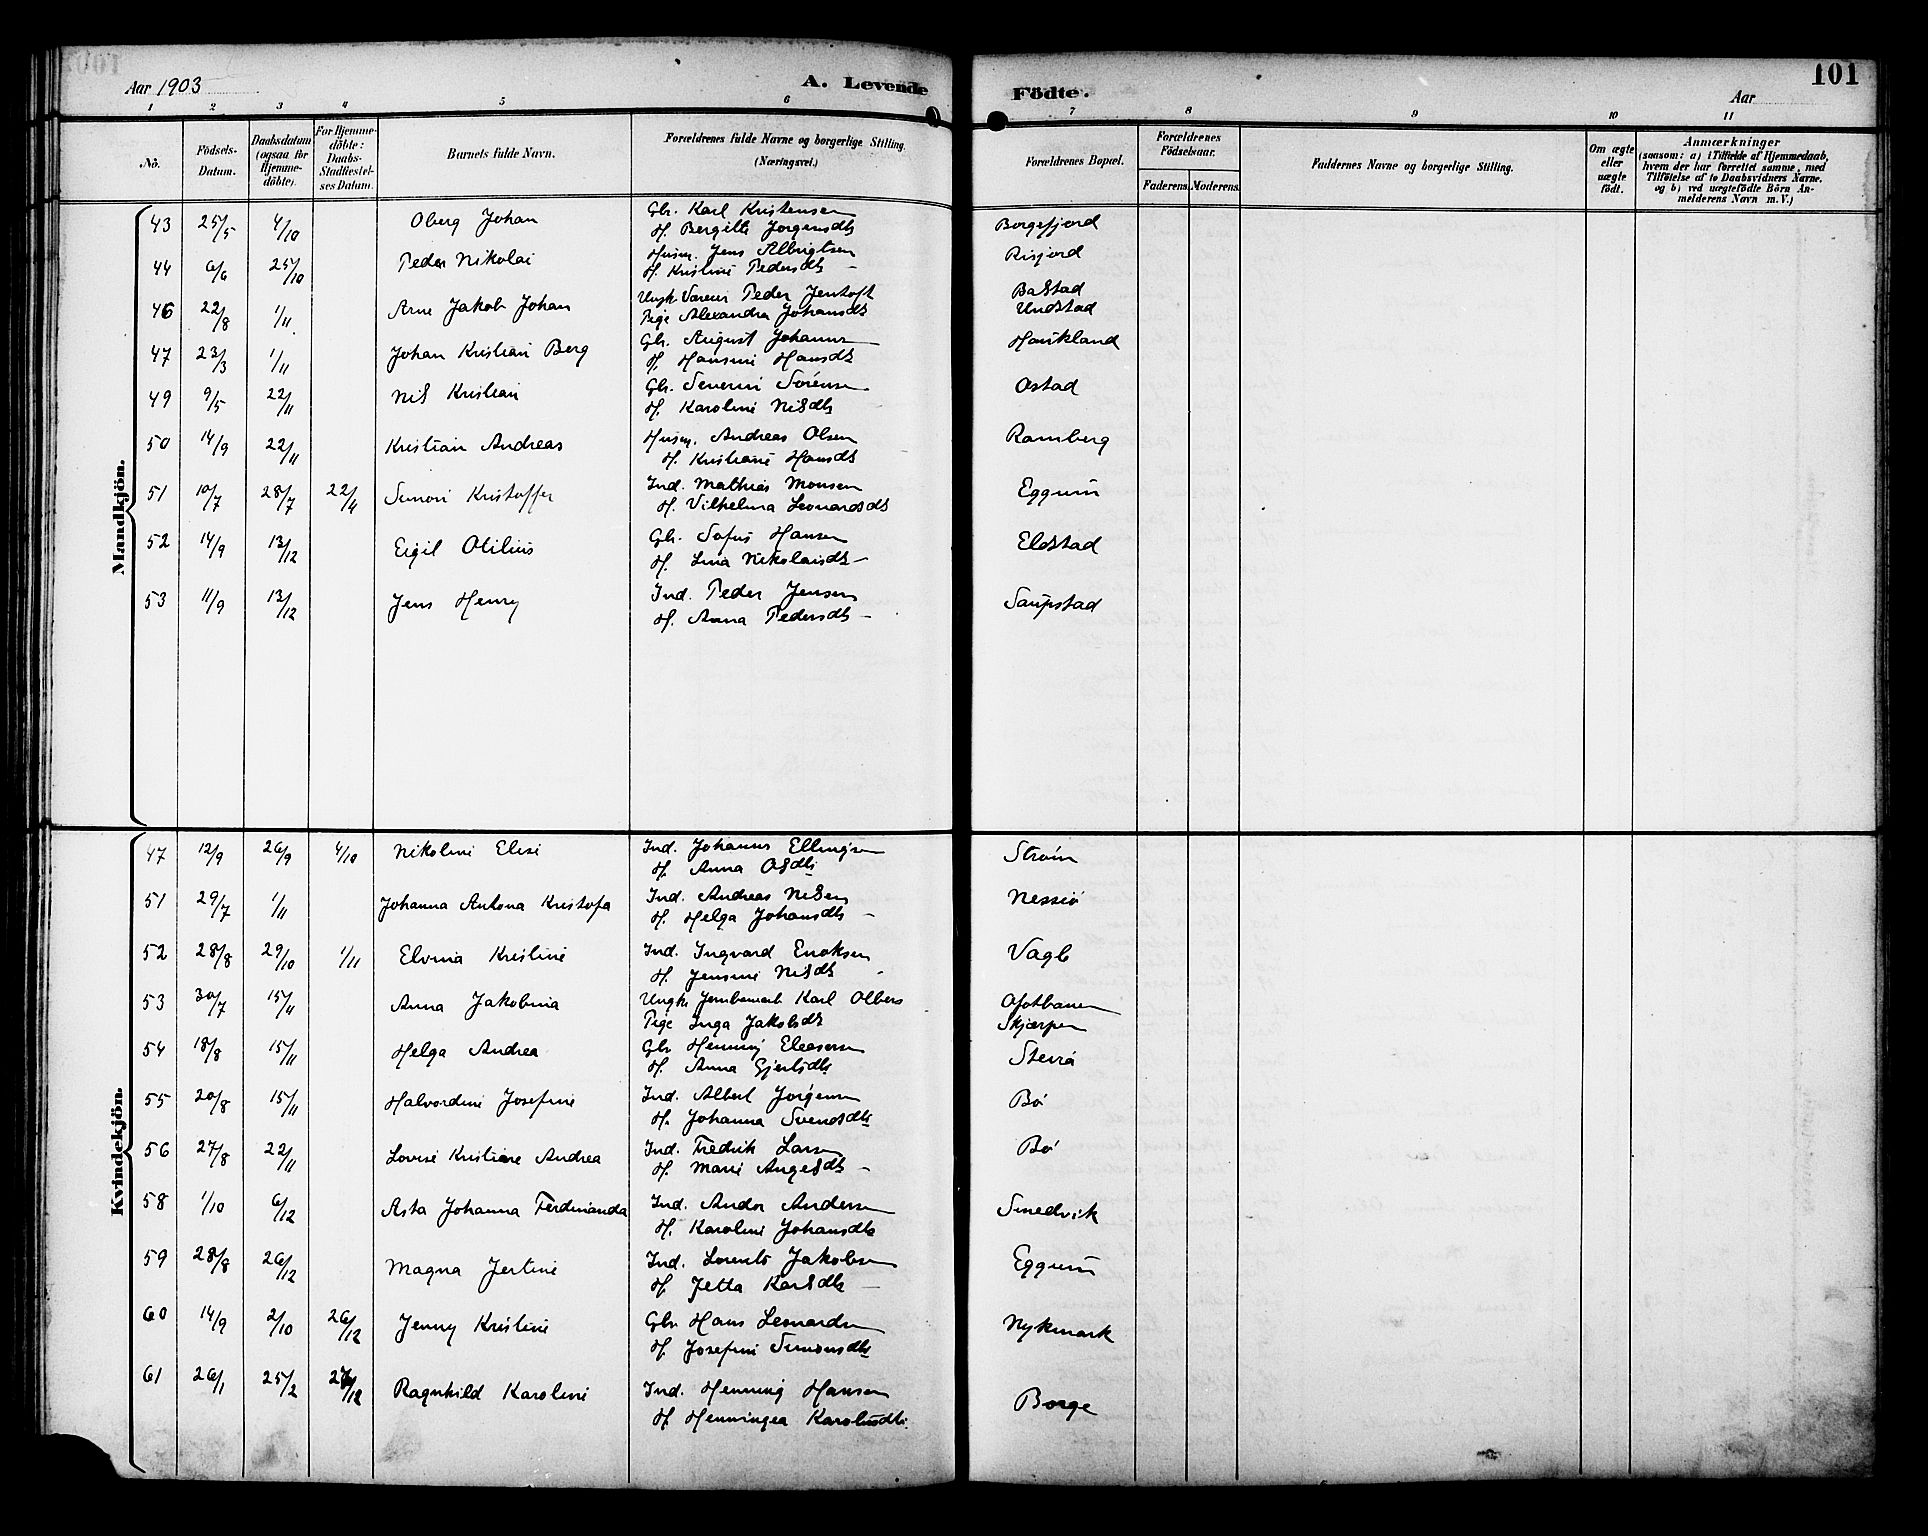 Aar 1903
A. Levende Födte.
Aar
101
1 2 3 4 5 6 7 8 9 10 11
No.
Födsels-Datum.
Daabsdatum (ogsaa for Hjemme-döbte).
For Hjemme-döbte: Daabs-Stadfæstel-ses Datum.
Barnets fulde Navn.
Forældrenes fulde Navne og borgerlige Stilling. (Næringsvei.)
Forældrenes Bopæl.
Forældrenes Födselsaar.
Faderens. Moderens.
Faddernes Navne og borgerlige Stilling.
Om ægte eller uægte födt.
Anmærkninger
(saasom: a) i Tilfælde af Hjemmedaab, hvem der har forrettet samme, med Tilföielse af to Daabsvidners Navne. og b) ved uægtefödte Börn An-melderens Navn m.V.)
Mandkjön.
43 25/5 4/10 Oberg Johan Gbr. Karl Kristensen Borgefjord
H. Bergitte Jorgensdtr
44 6/6 25/10 Peder Nikolai Husm. Jens Albrigtsen Risjord
H. Kristine Pedersdtr —
46 22/8 1/11 Arne Jakob Johan Ungk. Peder Jentoft Bastad
Pige Alexandra Johansdtr Undstad
47 23/3 1/11 Johan Kristian Berg Gbr. August Johanns Haukland
H. Hansine Hansdtr
49 9/5 22/11 Nils Kristian Gbr. Severin Sörensen Ostad
H. Karoline Nilsdtr
50 14/9 22/11 Kristian Andreas Husm. Andreas Olsen Ramberg
H. Kristiane Hansdtr
51 10/7 28/7 22/4 Simon Kristoffer Ind. Mathias Monsen Eggum
H. Vilhelma Leonardsdtr
52 14/9 13/12 Eigil Otilius Gbr. Sofus Hansen Elostad
H. Lina Nikolaisdtr —
53 11/9 13/12 Jens Henry Ind. Peder Jensen Saupstad
H. Anna Pedersdtr —
Kvindekjön.
47 12/9 26/9 4/10 Nikoline Elisi Ind. Johannes Ellingsen Ström
H. Anna Olsdtr
51 29/7 1/11 Johanna Antona Kristofa Ind. Andreas Nilsen Nessiö
H. Helga Johansdtr —
52 28/8 29/10 1/11 Elvina Kristine Ind. Ingvard Enoksen Vagb
H. Jensine Nilsdtr
53 30/7 15/11 Anna Jakobina Ungk. Karl Olbers Ofotbanen
Pige Inga Jakobsdtr Skjærpen
54 18/8 15/11 Helga Andrea Gbr Henning Eleasersen Steirå
H. Anna Gjertsdtr
55 20/8 15/11 Halvordine Josefine Ind. Albert Jörgensen Bö
H. Johanna Svendsdtr
56 27/8 22/11 Lovise Kristiane Andrea Ind. Fredrik Larsen Bö
H. Marie Angelsdtr —
58 1/10 6/12 Asta Johanna Ferdinanda Ind. Andor Andersen Smedvik
H. Karoline Johansdtr
59 28/8 26/12 Magna Jertine Ind. Lorents Jakobsen Eggum
H. Jetta Karlsdtr —
60 14/9 2/10 26/12 Jenny Kristine Gbr Hans Leonardsen Nykmark
H. Josefine Simonsdtr
61 26/1 25/2 /12 Ragnhild Karoline Ind. Henning Hansen Borge
H. Henningea Karolusdtr